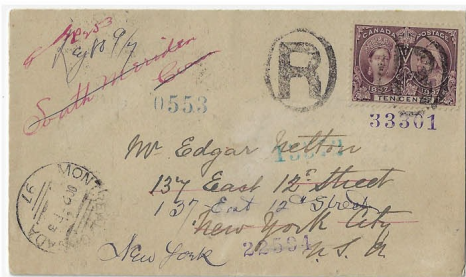 R
CANADA POSTAGE
1837 1897
TEN CENTS
South Meriden
0553
33301
Mr Edgar Nelton
137 East 12th Street
137 East 12th Street
New York City
New York 22591 U.S.A
MONTREAL
CANADA
97